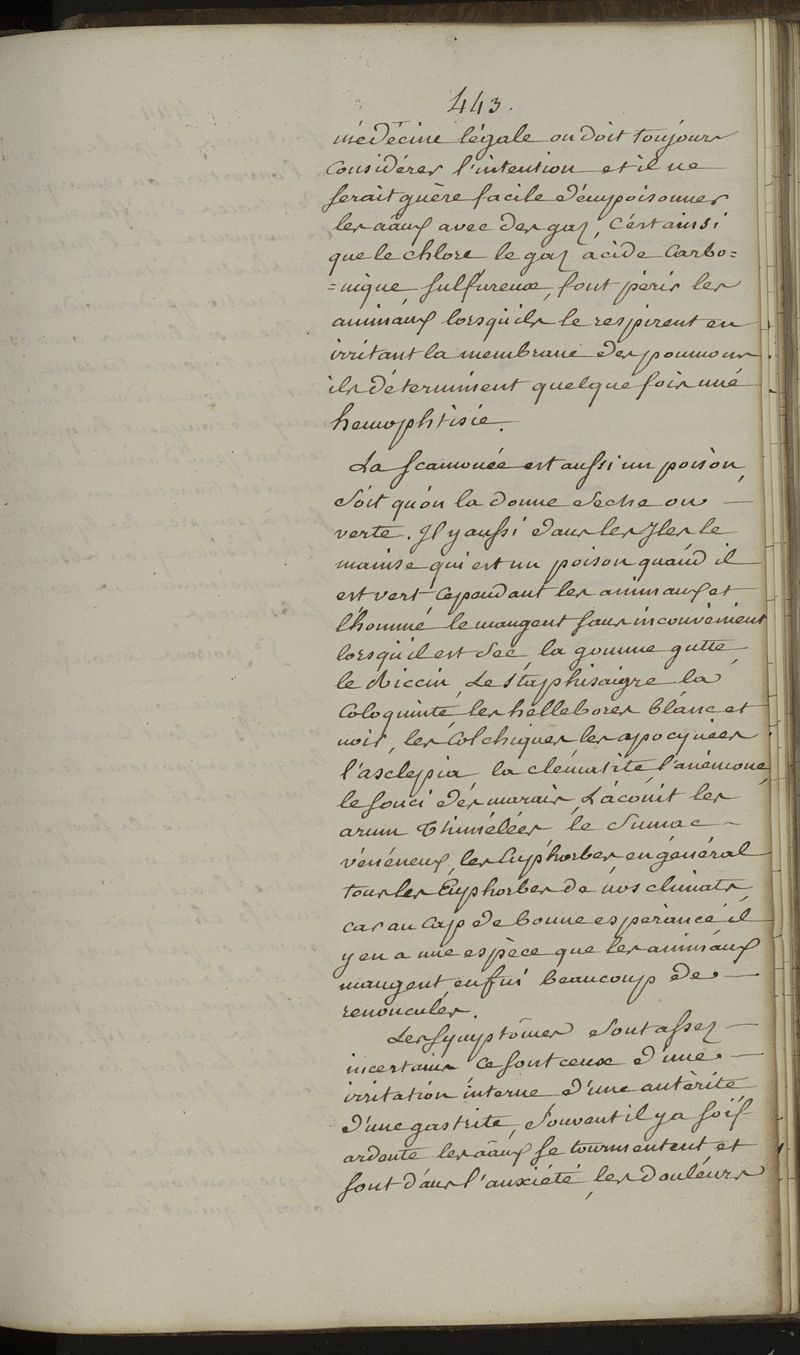 443.
médécine légale on doit toujours
considérer l'intention et il ne
serait guère facile d'émpoisonner
les aâux avec des gaz, C'est ainsi
que le chlore le gaz acide Carbo=
=nique, sulfureux, font périr les
animaux lorsqu'ils le respirent en
irritant la membrane des poumons
ils déterminent quelque fois une
hemophtisie.
La scamonée est aussi un poison,
soit qu'on la donne seche ou —
verte. Il y aussi dans les Iles le
manise qui est un poison quand il
est vert cependant les animaux et
l'homme le mangent sans inconvénient
lorsqu'il est sec, la gomme gutte,
le Riccin, Le staphisaigre la
Coloquinte les hélleborer blanc et
noir, les Colchiques les apocynées
l'asclepia la clématite, l'anémone,
le souci des marais, L'aconit les
arum Thimélées le Sumac —
vénéneux, les Euphorbes en général
tous les Euphorbes de nos climats,
car au Cap de bonne espérance il
y en a une espèce que les animaux
mangent, enfin beaucoup de —
renoncules.
Les symptômes sont assez —
incertains Ce sont ceux d'une —
irritation interne d'une antèrite,
d'une gastrite, Souvent il y a soif
ardente les aâux se tourmentent et
sont dans l'anxiété, les douleurs